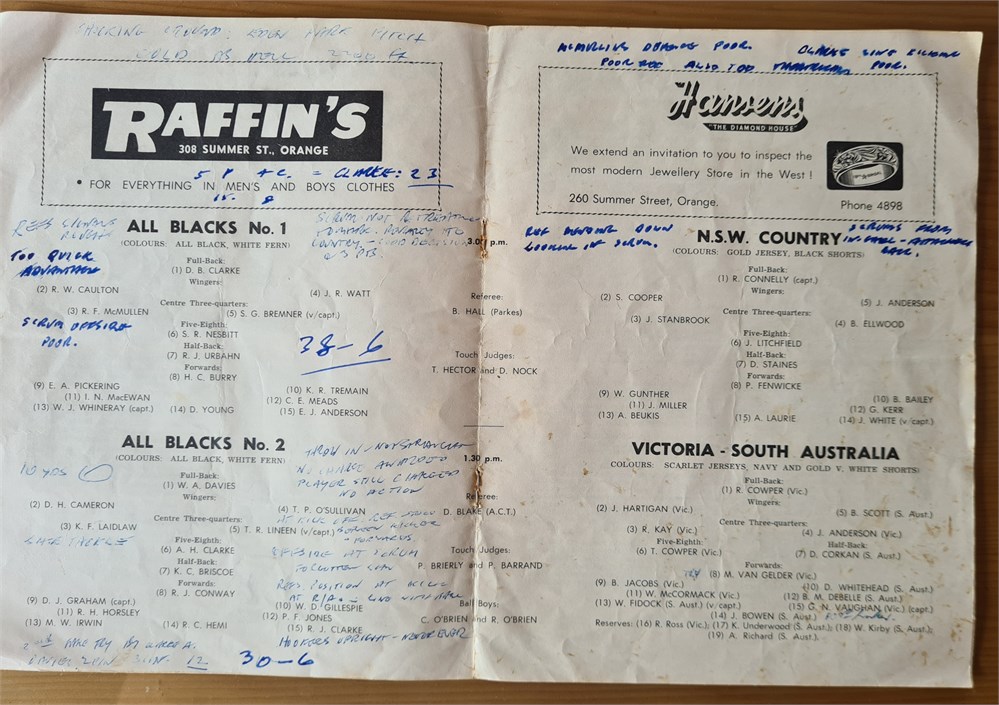 COLD AS HELL
RAFFIN'S
308 SUMMER ST., ORANGE
5 P + C. = CLARKE: 23
• FOR EVERYTHING IN MEN'S AND BOYS CLOTHES
ALL BLACKS No. 1
(COLOURS: ALL BLACK, WHITE FERN)
3.0 p.m.
TOO QUICK
ADVANTAGE
Full-Back:
(1) D. B. CLARKE
Wingers:
(2) R. W. CAULTON
(4) J. R. WATT
Centre Three-quarters:
(3) R. F. McMULLEN
(5) S. G. BREMNER (v/capt.)
Referee:
B. HALL (Parkes)
SCRUM OFFSIDE
POOR.
Five-Eighth:
(6) S. R. NESBITT
38-6
Half-Back:
(7) R. J. URBAHN
Touch Judges:
Forwards:
(8) H. C. BURRY
T. HECTOR and D. NOCK
(9) E. A. PICKERING
(10) K. R. TREMAIN
(11) I. N. MacEWAN
(12) C. E. MEADS
(13) W. J. WHINERAY (capt.)
(14) D. YOUNG
(15) E. J. ANDERSON
ALL BLACKS No. 2
(COLOURS: ALL BLACK, WHITE FERN)
1.30 p.m.
THROW IN - NOT STRAIGHT
PLAYER STILL CHARGED
NO ACTION
10 YDS
Full-Back:
(1) W. A. DAVIES
Wingers:
(2) D. H. CAMERON
(4) T. P. O'SULLIVAN
Referee:
D. BLAKE (A.C.T.)
Centre Three-quarters:
(3) K. F. LAIDLAW
(5) T. R. LINEEN (v/capt.)
LATE TACKLE
Five-Eighth:
(6) A. H. CLARKE
Half-Back:
(7) K. C. BRISCOE
Touch Judges:
P. BRIERLY and P. BARRAND
Forwards:
(8) R. J. CONWAY
REFS POSITION AT
(9) D. J. GRAHAM (capt.)
(10) W. D. GILLESPIE
(11) R. H. HORSLEY
(12) P. F. JONES
Ball Boys:
(13) M. W. IRWIN
(14) R. C. HEMI
(15) R. J. CLARKE
C. O'BRIEN and R. O'BRIEN
HOOKERS UPRIGHT -
30-6
McMULLINS DEFENCE POOR. CLARKE LINE KICKING
POOR. ALSO TOO POOR.
Hansens
"THE DIAMOND HOUSE"
We extend an invitation to you to inspect the
most modern Jewellery Store in the West !
260 Summer Street, Orange.
Phone 4898
REF BENDING DOWN
LOOKING IN SCRUM.
N.S.W. COUNTRY
(COLOURS: GOLD JERSEY, BLACK SHORTS)
Full-Back:
(1) R. CONNELLY (capt.)
Wingers:
(2) S. COOPER
(5) J. ANDERSON
Centre Three-quarters:
(3) J. STANBROOK
(4) B. ELLWOOD
Five-Eighth:
(6) J. LITCHFIELD
Half-Back:
(7) D. STAINES
Forwards:
(8) P. FENWICKE
(9) W. GUNTHER
(10) B. BAILEY
(11) J. MILLER
(12) G. KERR
(13) A. BEUKIS
(15) A. LAURIE
(14) J. WHITE (v/capt.)
VICTORIA - SOUTH AUSTRALIA
COLOURS: SCARLET JERSEYS, NAVY AND GOLD V. WHITE SHORTS)
Full-Back:
(1) R. COWPER (Vic.)
Wingers:
(2) J. HARTIGAN (Vic.)
(5) B. SCOTT (S. Aust.)
Centre Three-quarters:
(3) R. KAY (Vic.)
(4) J. ANDERSON (Vic.)
Five-Eighth:
(6) T. COWPER (Vic.)
Half-Back:
(7) D. CORKAN (S. Aust.)
Forwards:
(8) M. VAN GELDER (Vic.)
(9) B. JACOBS (Vic.)
(10) D. WHITEHEAD (S. Aust.)
(11) W. McCORMACK (Vic.)
(12) B. M. DEBELLE (S. Aust.)
(13) W. FIDOCK (S. Aust.) (v/capt.)
(15) G. N. VAUGHAN (Vic.) (capt.)
(14) J. BOWEN (S. Aust.)
Reserves: (16) R. Ross (Vic.); (17) K. Underwood (S. Aust.); (18) W. Kirby (S. Aust.);
(19) A. Richard (S. Aust.).